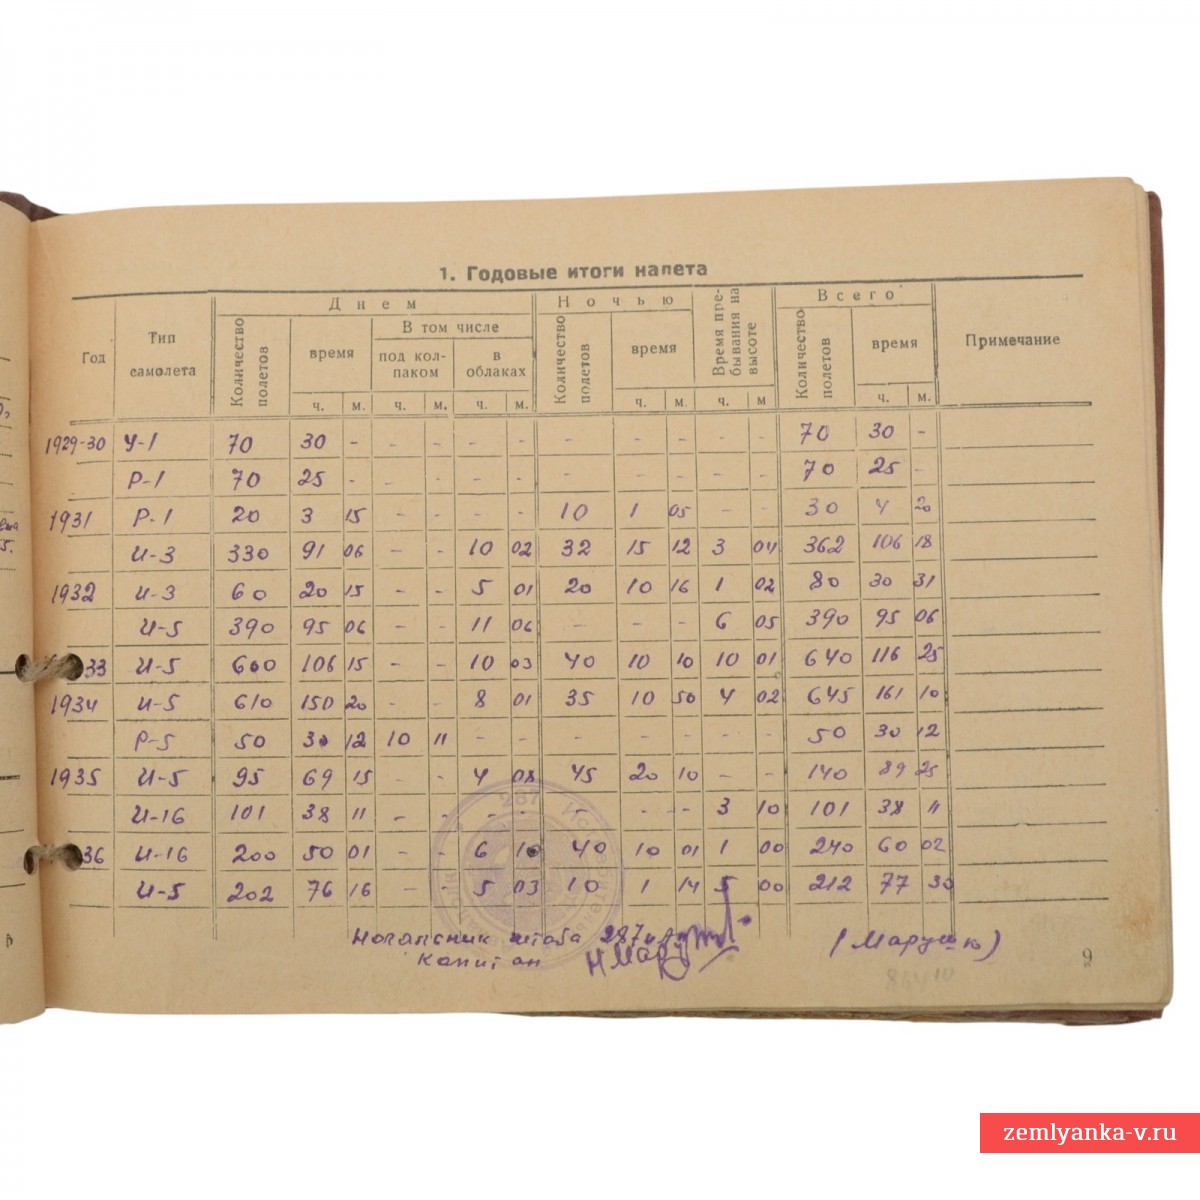 1. Годовые итоги налета
Год Тип самолета Днем Ночью Время пребывания на высоте Всего Примечание
Количество полетов время В том числе Количество полетов время Количество полетов время
под колпаком в облаках
ч. м. ч. м. ч. м. ч. м. ч. м ч. м.
1929-30 У-1 70 30 - - - - - - - - - - 70 30 -
Р-1 70 25 - - - - - - - - - - 70 25 -
1931 Р-1 20 3 15 - - - - 10 1 05 - - 30 4 20
И-3 330 91 06 - - 10 02 32 15 12 3 04 362 106 18
1932 И-3 60 20 15 - - 5 01 20 10 16 1 02 80 30 31
И-5 390 95 06 - - 11 06 - - - 6 05 390 95 06
33 И-5 600 106 15 - - 10 03 40 10 10 10 01 640 116 25
1934 И-5 610 150 20 - - 8 01 35 10 50 4 02 645 161 10
Р-5 50 30 12 10 11 - - - - - - - 50 30 12
1935 И-5 95 69 15 - - 4 08 45 20 10 - - 140 89 25
И-16 101 38 11 - - - - - - - 3 10 101 38 11
36 И-16 200 50 01 - - 6 10 40 10 01 1 00 240 60 02
И-5 202 76 16 - - 5 03 10 1 14 5 00 212 77 30
287
штаба 287
Капитан Н Мару (Марушко)
9
zemlyanka-v.ru